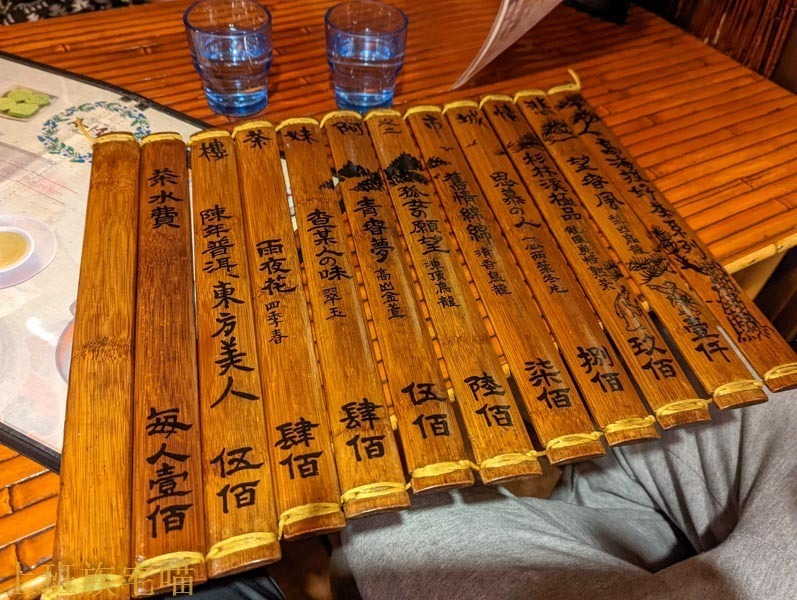 悲情城市之阿妹茶樓
望春風
壹仟
杉林溪極品
玖佰
思慕の人
捌佰
舊情綿綿 清香烏龍
柒佰
孤女の願望 凍頂烏龍
陸佰
青春夢 高山金萱
伍佰
查某人の味 翠玉
肆佰
雨夜花 四季春
肆佰
陳年普洱、東方美人
伍佰
茶水費
每人壹佰